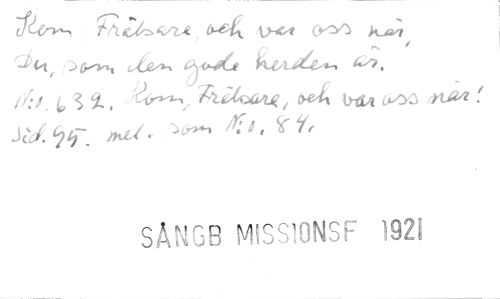 Kom, Frälsare, och var oss när,
Du, som den gode herden är.
N:o. 632. Kom, Frälsare, och var oss när!
Sid. 95. mel. som N:o. 84.
SÅNGB MISSIONSF 1921